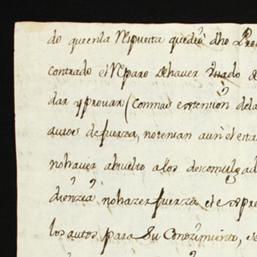 de que en la Respuesta quedó dho Pro
contrado el Reparo de haver Usado d
dar y provar (con mas extension de la
autos de fuerza, no tenian aun el esta
no haver absuelto a los descomulgad
diencia no hazer fuerza el espre
los autos para su Conozimiento, e